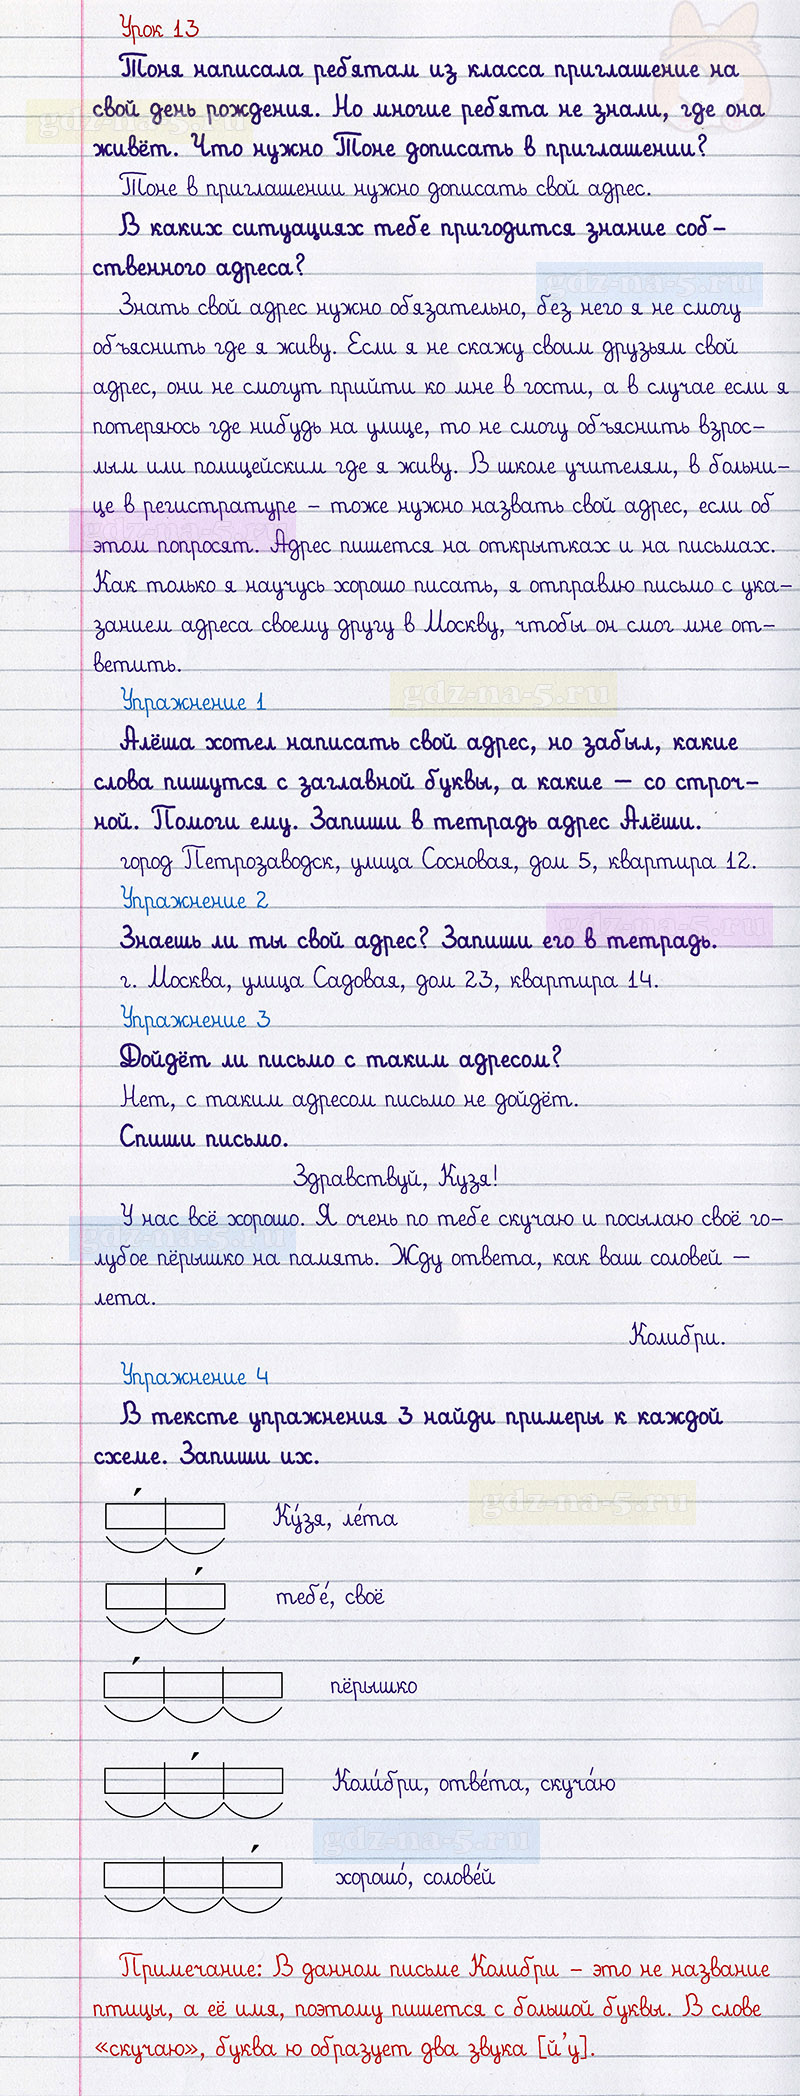 Урок 13
Тоня написала ребятам из класса приглашение на
свой день рождения. Но многие ребята не знали, где она
живёт. Что нужно Тоне дописать в приглашении?
Тоне в приглашении нужно дописать свой адрес.
В каких ситуациях тебе пригодится знание соб-
ственного адреса?
Знать свой адрес нужно обязательно, без него я не смогу
объяснить где я живу. Если я не скажу своим друзьям свой
адрес, они не смогут прийти ко мне в гости, а в случае если я
потеряюсь где нибудь на улице, то не смогу объяснить взрос-
лым или полицейским где я живу. В школе учителям, в больни-
це в регистратуре – тоже нужно назвать свой адрес, если об
этом попросят. Адрес пишется на открытках и на письмах.
Как только я научусь хорошо писать, я отправлю письмо с ука-
занием адреса своему другу в Москву, чтобы он смог мне от-
ветить.
Упражнение 1
Алёша хотел написать свой адрес, но забыл, какие
слова пишутся с заглавной буквы, а какие — со строч-
ной. Помоги ему. Запиши в тетрадь адрес Алёши.
город Петрозаводск, улица Сосновая, дом 5, квартира 12.
Упражнение 2
Знаешь ли ты свой адрес? Запиши его в тетрадь.
г. Москва, улица Садовая, дом 23, квартира 14.
Упражнение 3
Дойдёт ли письмо с таким адресом?
Нет, с таким адресом письмо не дойдёт.
Спиши письмо.
Здравствуй, Кузя!
У нас всё хорошо. Я очень по тебе скучаю и посылаю своё го-
лубое пёрышко на память. Жду ответа, как ваш соловей —
лета.
Колибри.
Упражнение 4
В тексте упражнения 3 найди примеры к каждой
схеме. Запиши их.
Ку́зя, ле́та
тебе́, своё
пёрышко
Коли́бри, отве́та, скуча́ю
хорошо́, солове́й
Примечание: В данном письме Колибри – это не название
птицы, а её имя, поэтому пишется с большой буквы. В слове
«скучаю», буква ю образует два звука [й'у].
gdz-na-5.ru
gdz-na-5.ru
gdz-na-5.ru
gdz-na-5.ru
gdz-na-5.ru
gdz-na-5.ru
gdz-na-5.ru
gdz-na-5.ru